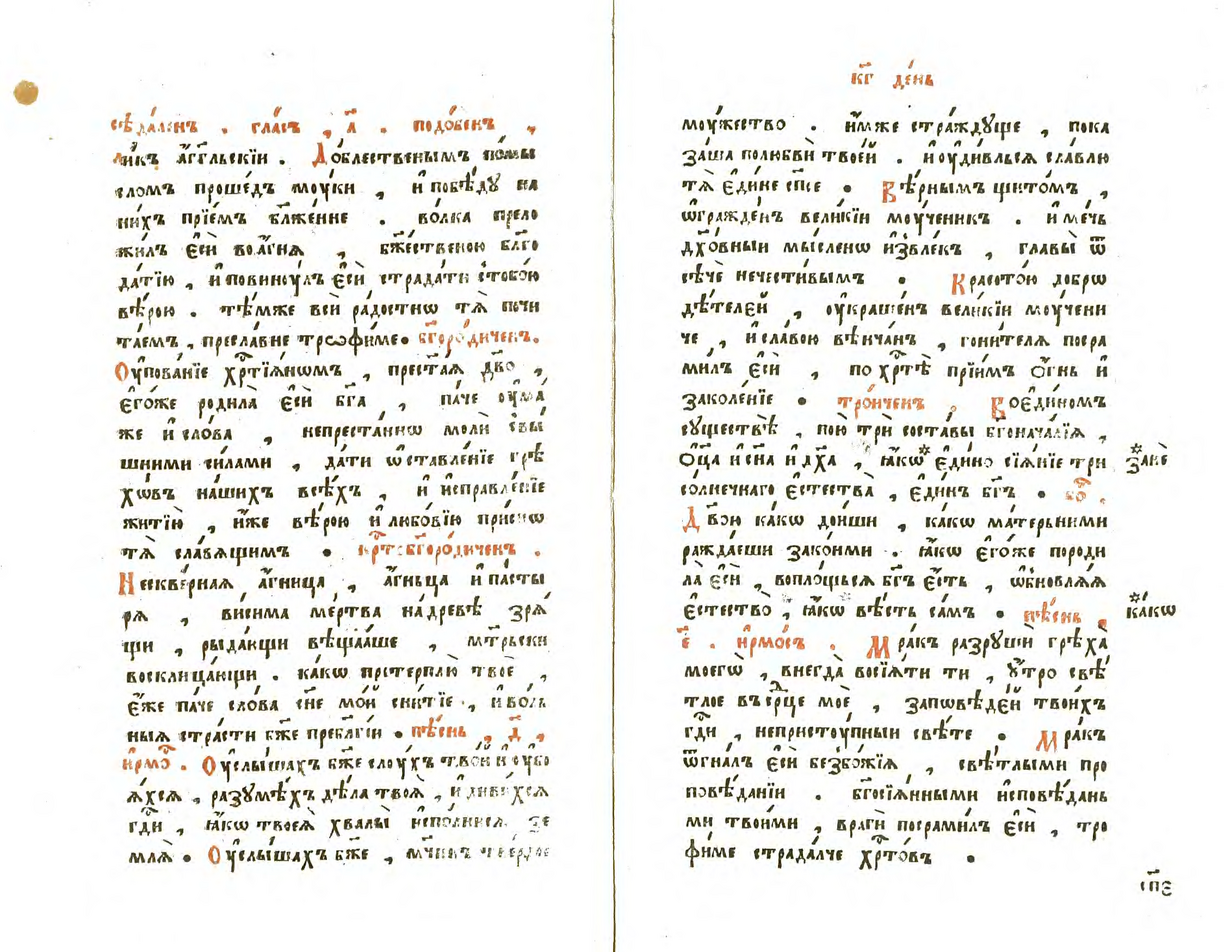 сѣда́ленъ . гла́съ , а҃ . подо́бенъ ,
ли́къ а҆́гг҃льскїи . До́блественымъ по́мы
сломъ проше́дъ моу́ки , и҆ побѣ́дꙋ на
ни́хъ прїе́мъ бл҃же́нне . во́лка прело
жи́лъ є҆сѝ во а҆́гня , бж҃е́ственою бл҃го
да́тїю , и҆ повину́лъ є҆сѝ страда́ти с тобо́ю
вѣ́рою . тѣ́мже всѝ ра́достнѡ тѧ̀ почи
та́емъ , пресла́вне трофи́ме . бг҃оро́диченъ .
Оу҆пова́нїе хрⷭ҇тїѧ́нѡмъ , прест҃а́ѧ дв҃о ,
є҆го́же родила̀ є҆сѝ бг҃а , па́че оу҆ма̀
же и҆ сло́ва , непреста́ннѡ молѝ с вы́
шними си́лами , да́ти ѡ҆ставле́нїе грѣ
хѡ́въ на́шихъ всѣ́хъ , и҆ и҆справле́нїе
житїю̀ , и҆́же вѣ́рою и҆ любо́вїю при́снѡ
тѧ̀ сла́вѧщимъ . крⷭ҇то бг҃оро́диченъ .
Нескве́рнаѧ а҆́гница , а҆́гньца и҆ па́сты
рѧ , ви́сима ме́ртва на дре́вѣ зрѧ́
щи , рыда́ющи вѣща́аше , мт҃рьски
восклица́ющи . ка́кѡ претерплю̀ твоѐ ,
є҆́же па́че сло́ва сн҃е мо́й сни́тїе , и҆ во́ль
ныѧ стра́сти бж҃е пребл҃гі́и . пѣ́снь , д҃ ,
і҆рмо́с . Оу҆слы́шахъ бж҃е слоу́хъ тво́й и҆ оу҆бо
ѧ́хсѧ , разꙋмѣ́хъ дѣла̀ твоѧ̀ , и҆ диви́хсѧ
гд҃и , ꙗ҆́кѡ твоеѧ̀ хвалы̀ и҆спо́лнисѧ зе
млѧ̀ . Оу҆слы́шахъ бж҃е , мч҃никъ тве́рдое
к҃г де́нь
моу́жество . и҆́мже стра́ждꙋще , пока
за́ша полюбвѝ твое́й . и҆ оу҆диви́льсѧ сла́влю
тѧ̀ є҆ди́не сп҃се . Вѣ́рнымъ щито́мъ ,
ѡ҆гражде́нъ вели́кїи моу́ченикъ . и҆ ме́чь
дх҃о́вныи мы́сленѡ и҆звле́къ , главы̀ ѿ
сѣ́че нечести́вымъ . Красото́ю добрѡ
дѣ́телей , оу҆краше́нъ вели́кїи моу́чени
че , и҆ сла́вою вѣнча́нъ , гони́телѧ посра
ми́лъ є҆сѝ , по хрⷭ҇тѣ̀ прїи́мъ о҆́гнь и҆
заколе́нїе . тро́иченъ . Воеди́номъ
существѣ̀ , пою̀ трѝ соста́вы бг҃онача́лїѧ ,
Оц҃а и҆ сн҃а и҆ дх҃а , ꙗ҆́кѡ* є҆ди́но сїѧ́нїе три * занѐ
со́лнечнаго є҆стества̀ , є҆ди́нъ бг҃ъ . бо҃ .
Дв҃ою ка́кѡ дои́ши , ка́кѡ ма́терьними
ражда́еши зако́нми . ꙗ҆́кѡ є҆го́же породи
ла̀ є҆сѝ , воплощьсѧ бг҃ъ є҆́сть , ѡ҆бновлѧ́ѧ
є҆стество̀ , * ꙗ҆́кѡ вѣ́сть са́мъ . пѣ́снь , * ка́кѡ
є҃ . і҆рмо́съ . Мра́къ разрꙋшѝ грѣха̀
моегѡ̀ , внегда̀ восїѧ́ти ти , оу҆́тро свѣ́
тлое въ ср҃це моѐ , за́пѡвѣдей твои́хъ
гд҃и , непристоу́пныи свѣ́те . Мра́къ
ѿгна́лъ є҆сѝ безбо́жїѧ , свѣ́тлыми про
повѣ́данїи . бг҃осїѧ́нными и҆сповѣ́дань
ми твои́ми , врагѝ посрами́лъ є҆сѝ , тро
фи́ме страда́лче хрⷭ҇то́въ .
сп҃ѕ